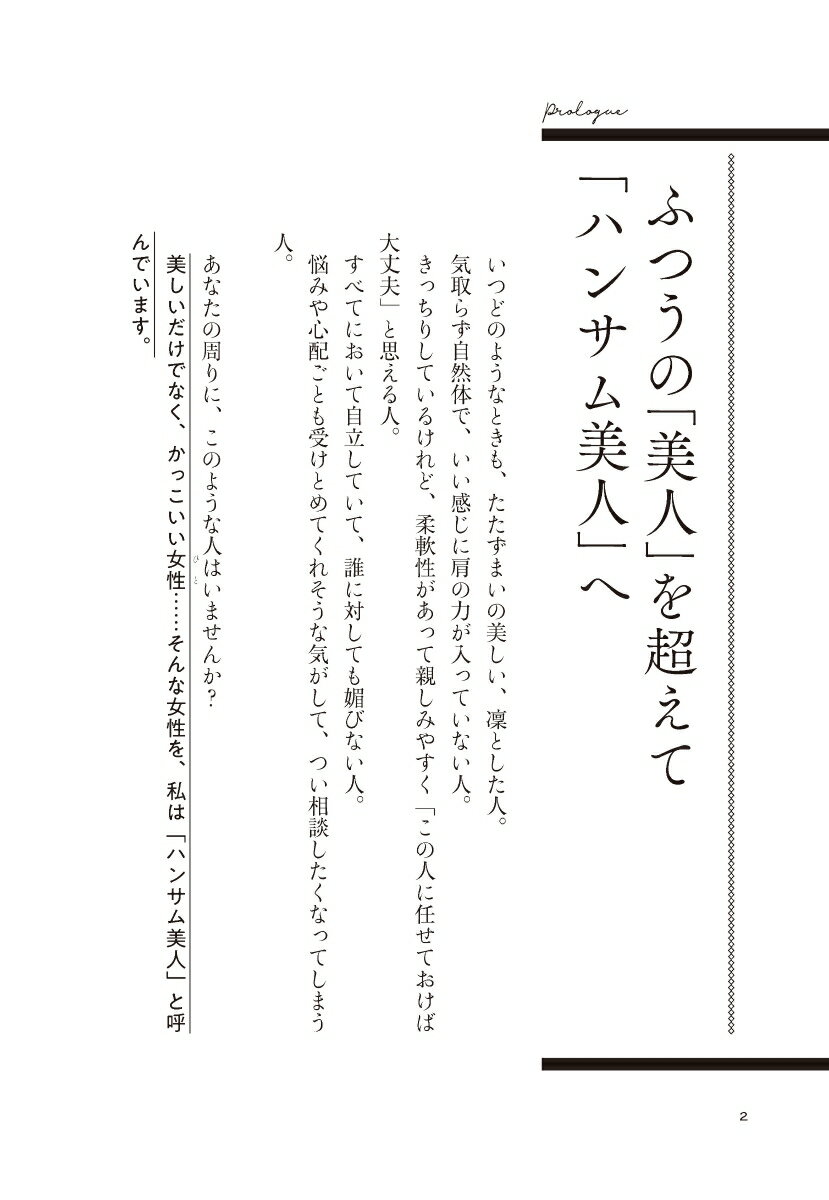 Prologue
ふつうの「美人」を超えて
「ハンサム美人」へ
いつどのようなときも、たたずまいの美しい、凜とした人。
気取らず自然体で、いい感じに肩の力が入っていない人。
きっちりしているけれど、柔軟性があって親しみやすく「この人に任せておけば
大丈夫」と思える人。
すべてにおいて自立していて、誰に対しても媚びない人。
悩みや心配ごとも受けとめてくれそうな気がして、つい相談したくなってしまう
人。
あなたの周りに、このような人はいませんか?
美しいだけでなく、かっこいい女性……そんな女性を、私は「ハンサム美人」と呼
ひと
んでいます。
2